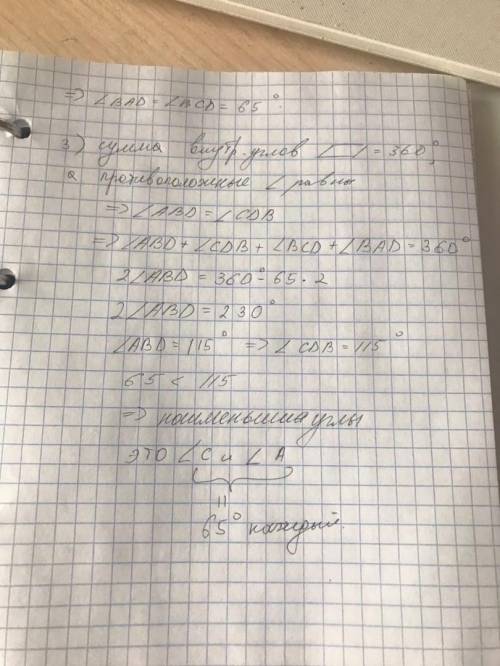 => ∠BAD = ∠BCD = 65°.
3) сумма внутр. углов ▱ = 360°,
а противоположные ∠ равны
=> ∠ABD = ∠CDB
=> ∠ABD + ∠CDB + ∠BCD + ∠BAD = 360°
2∠ABD = 360° - 65 · 2
2∠ABD = 230°
∠ABD = 115° => ∠CDB = 115°
65 < 115
=> наименьшиа углы
это ∠C и ∠A
||
65° каждый.